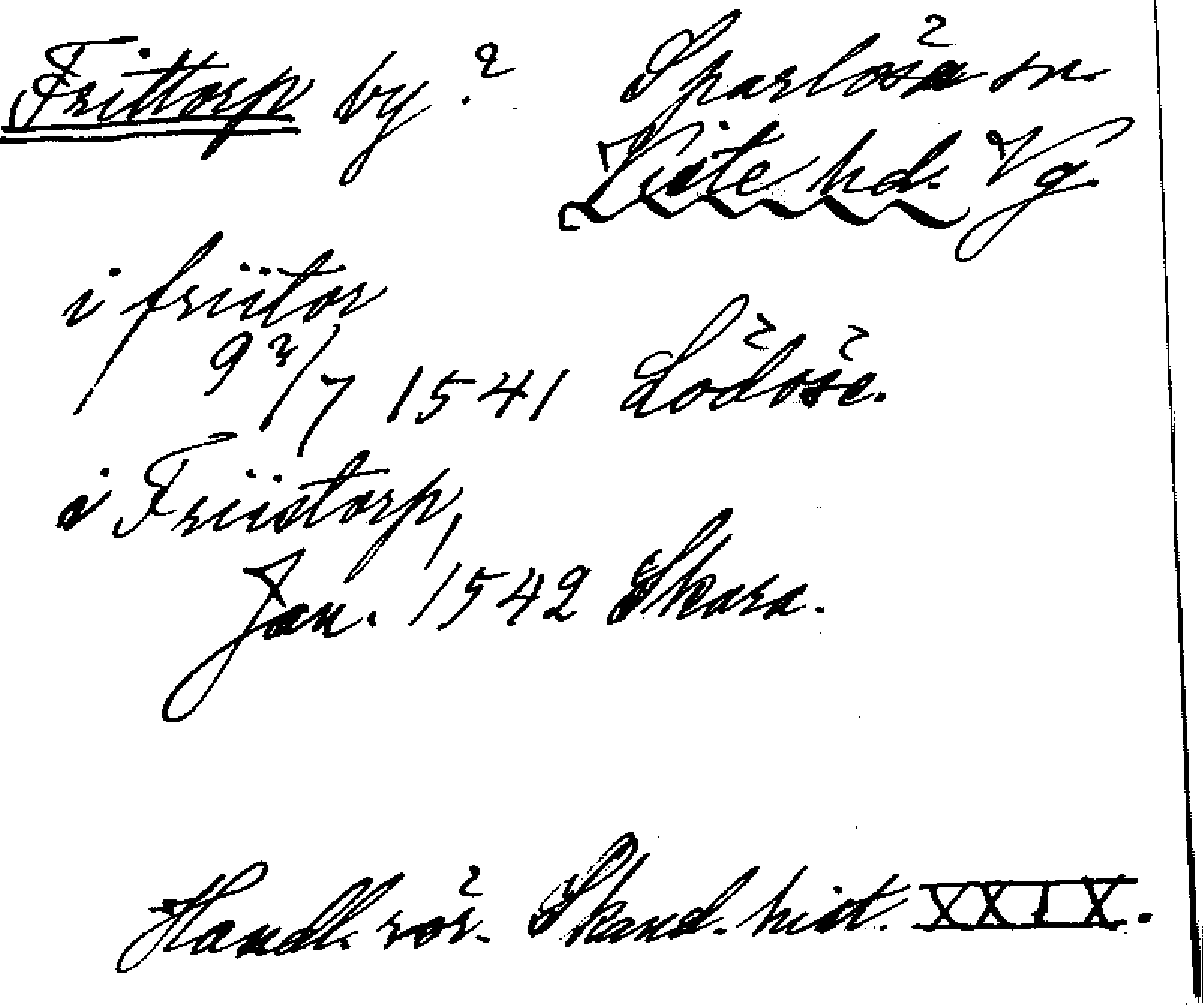 Frittorp by? Sparlösa sn.
Viste hd. Vg.
i friitor
9 2/7 1541 Lödöse.
i Friistorp,
Jan. 1542 Skara.
Handl. rör. Skand. hist. XXIX.